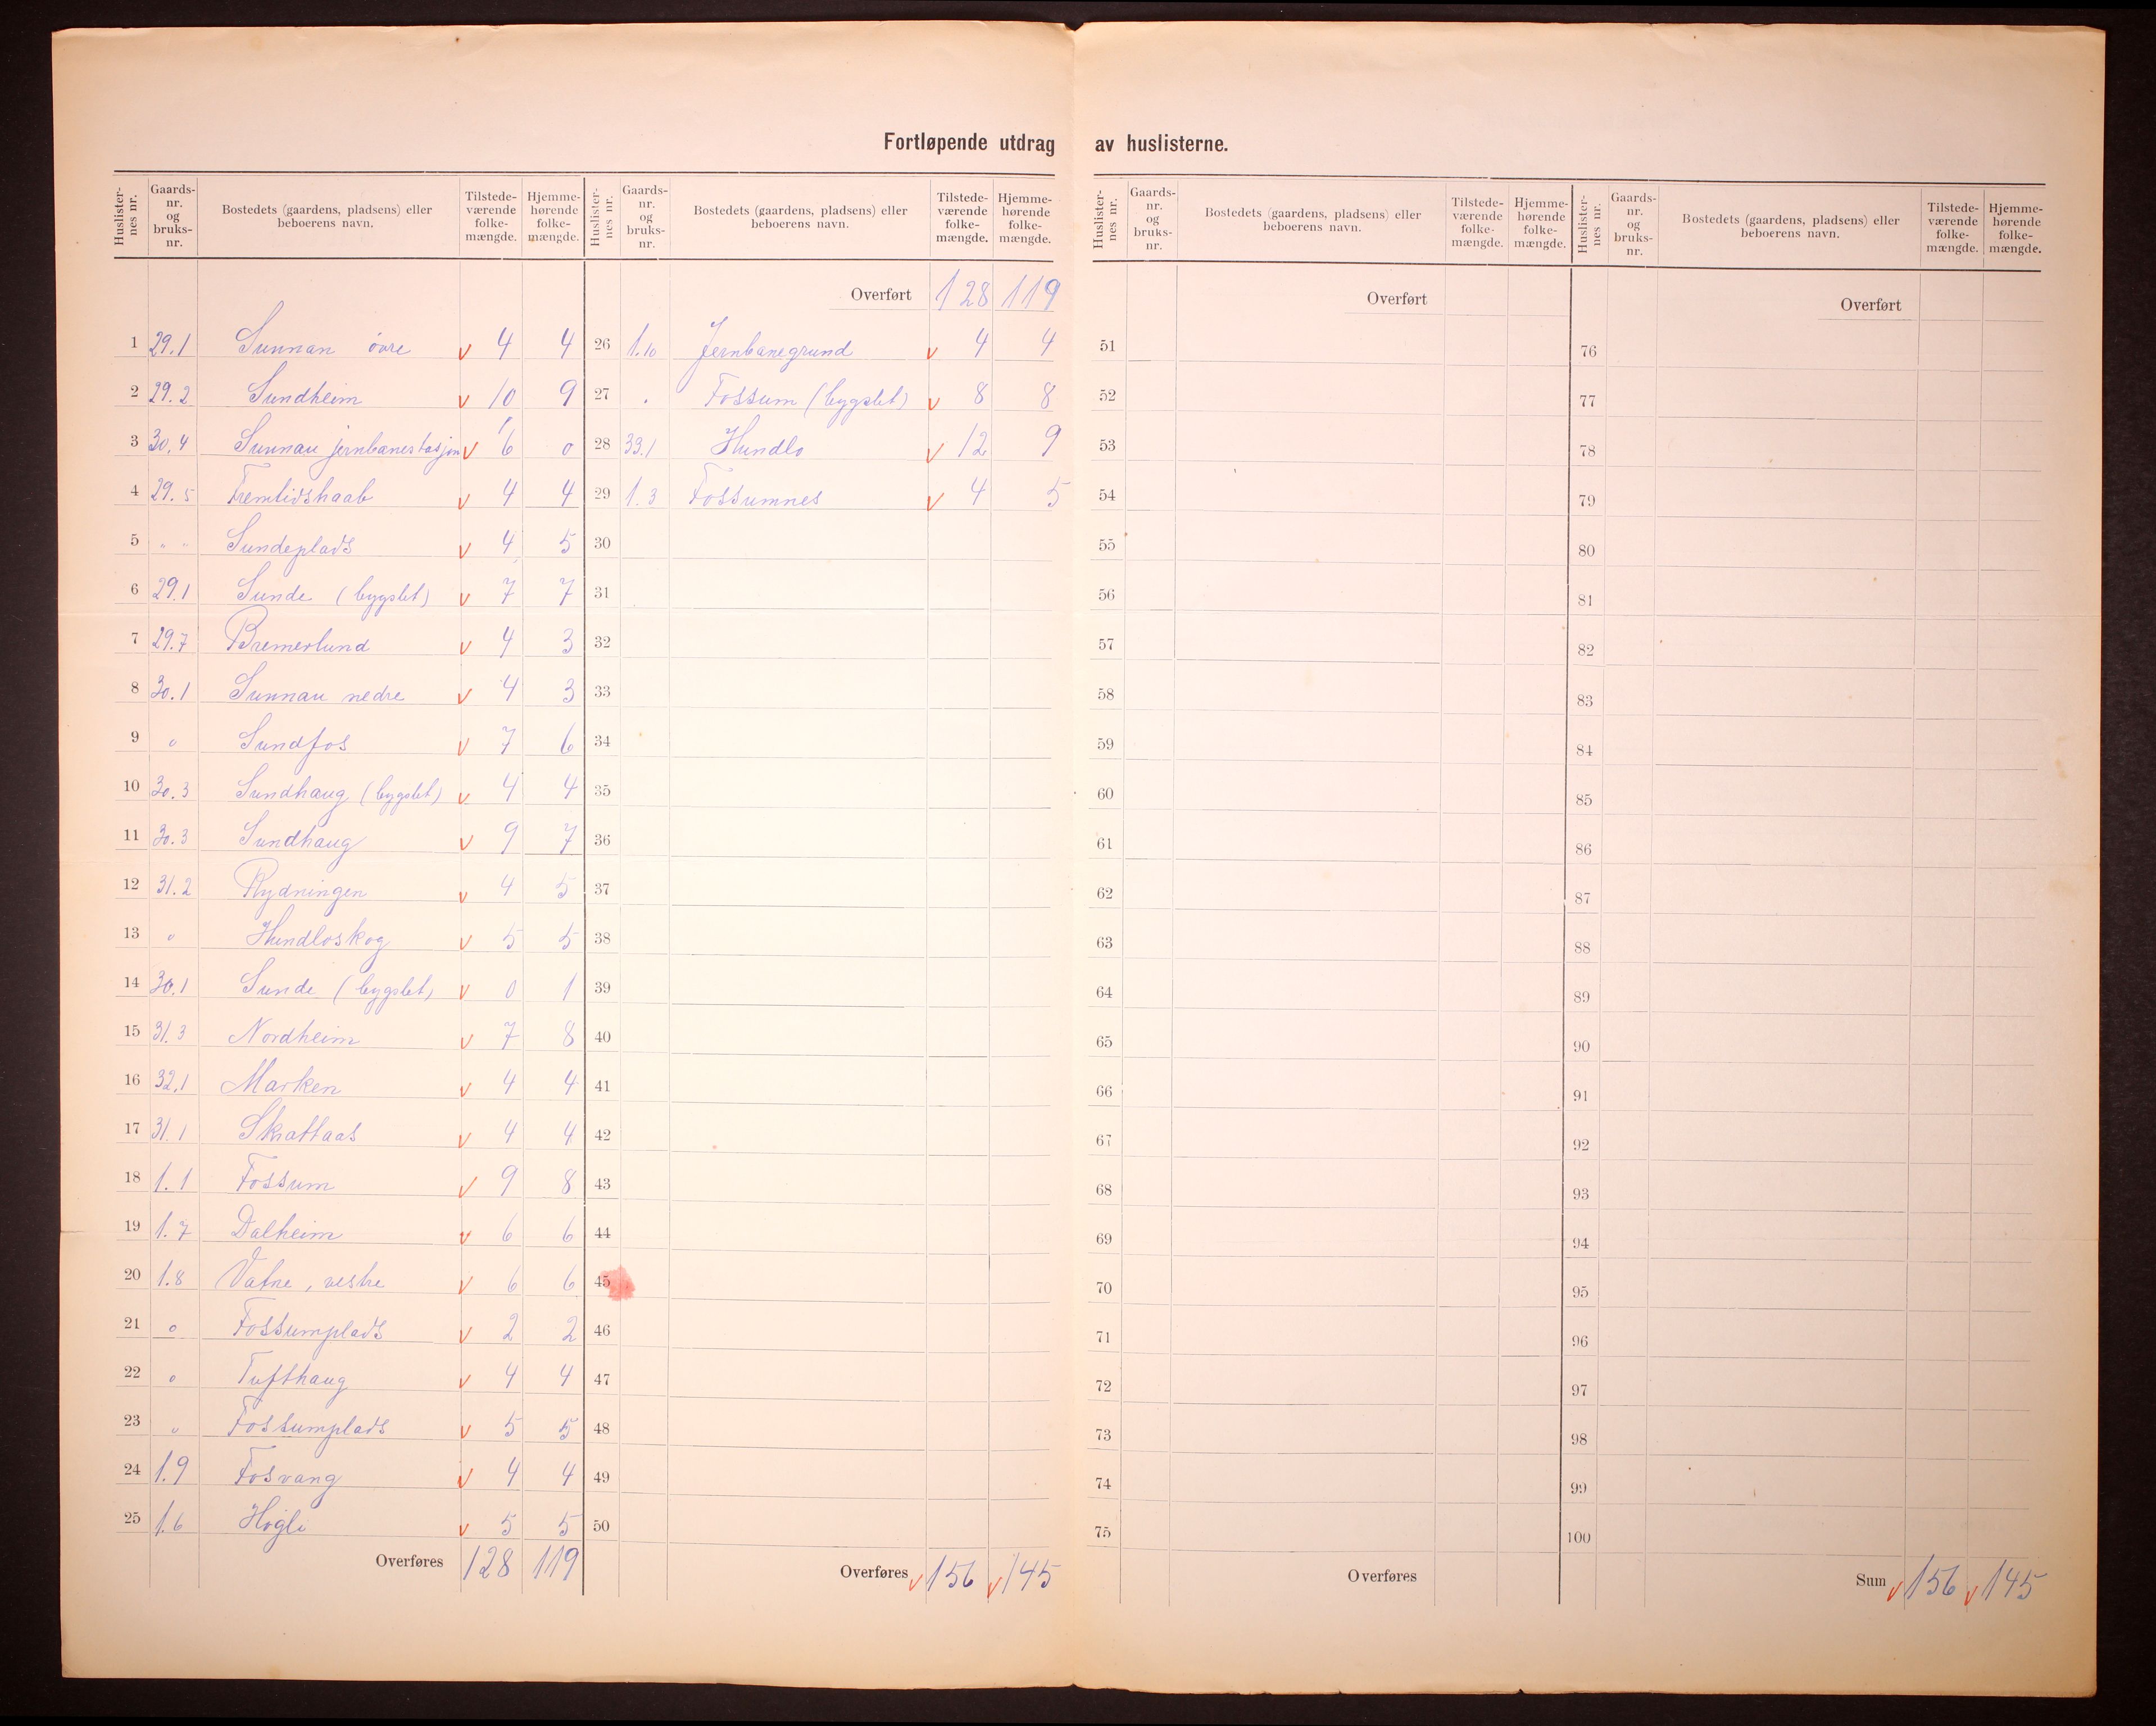 Fortløpende utdrag av huslisterne.
Huslister-nes nr. Gaards-nr. og bruks-nr. Bostedets (gaardens, pladsens) eller beboerens navn. Tilstede-værende folke-mængde. Hjemme-hørende folke-mængde.
1 29.1 Sunnan övre v 4 4
2 29.2 Sundheim v 10 9
3 30.4 Sunnan jernbanestasjon v 6 0
4 29.5 Fremtidshaab v 4 4
5 " " Sundeplads v 4 5
6 29.1 Sunde (bygslet) v 7 7
7 29.7 Bremerlund v 4 3
8 30.1 Sunnan nedre v 4 3
9 " Sundfos v 7 6
10 30.3 Sundhaug (bygslet) v 4 4
11 30.3 Sundhaug v 9 7
12 31.2 Rydningen v 4 5
13 " Hundloskog v 5 5
14 30.1 Sunde (bygslet) v 0 1
15 31.3 Nordheim v 7 8
16 32.1 Marken v 4 4
17 31.1 Skrattaas v 4 4
18 1.1 Fossum v 9 8
19 1.7 Dalheim v 6 6
20 1.8 Vatne, vestre v 6 6
21 " Fossumplads v 2 2
22 " Tufthaug v 4 4
23 " Fossumplads v 5 5
24 1.9 Fosvang v 4 4
25 1.6 Högli v 5 5
Overføres 128 119
Huslister-nes nr. Gaards-nr. og bruks-nr. Bostedets (gaardens, pladsens) eller beboerens navn. Tilstede-værende folke-mængde. Hjemme-hørende folke-mængde.
Overført 128 119
26 1.10 Jernbanegrund v 4 4
27 . Fossum (bygslet) v 8 8
28 33.1 Hundlo v 12 9
29 1.3 Fossumnes v 4 5
30
31
32
33
34
35
36
37
38
39
40
41
42
43
44
45
46
47
48
49
50
Overføres v 156 v 145
Huslister-nes nr. Gaards-nr. og bruks-nr. Bostedets (gaardens, pladsens) eller beboerens navn. Tilstede-værende folke-mængde. Hjemme-hørende folke-mængde.
Overført
51
52
53
54
55
56
57
58
59
60
61
62
63
64
65
66
67
68
69
70
71
72
73
74
75
Overføres
Huslister-nes nr. Gaards-nr. og bruks-nr. Bostedets (gaardens, pladsens) eller beboerens navn. Tilstede-værende folke-mængde. Hjemme-hørende folke-mængde.
Overført
76
77
78
79
80
81
82
83
84
85
86
87
88
89
90
91
92
93
94
95
96
97
98
99
100
Sum v 156 v 145